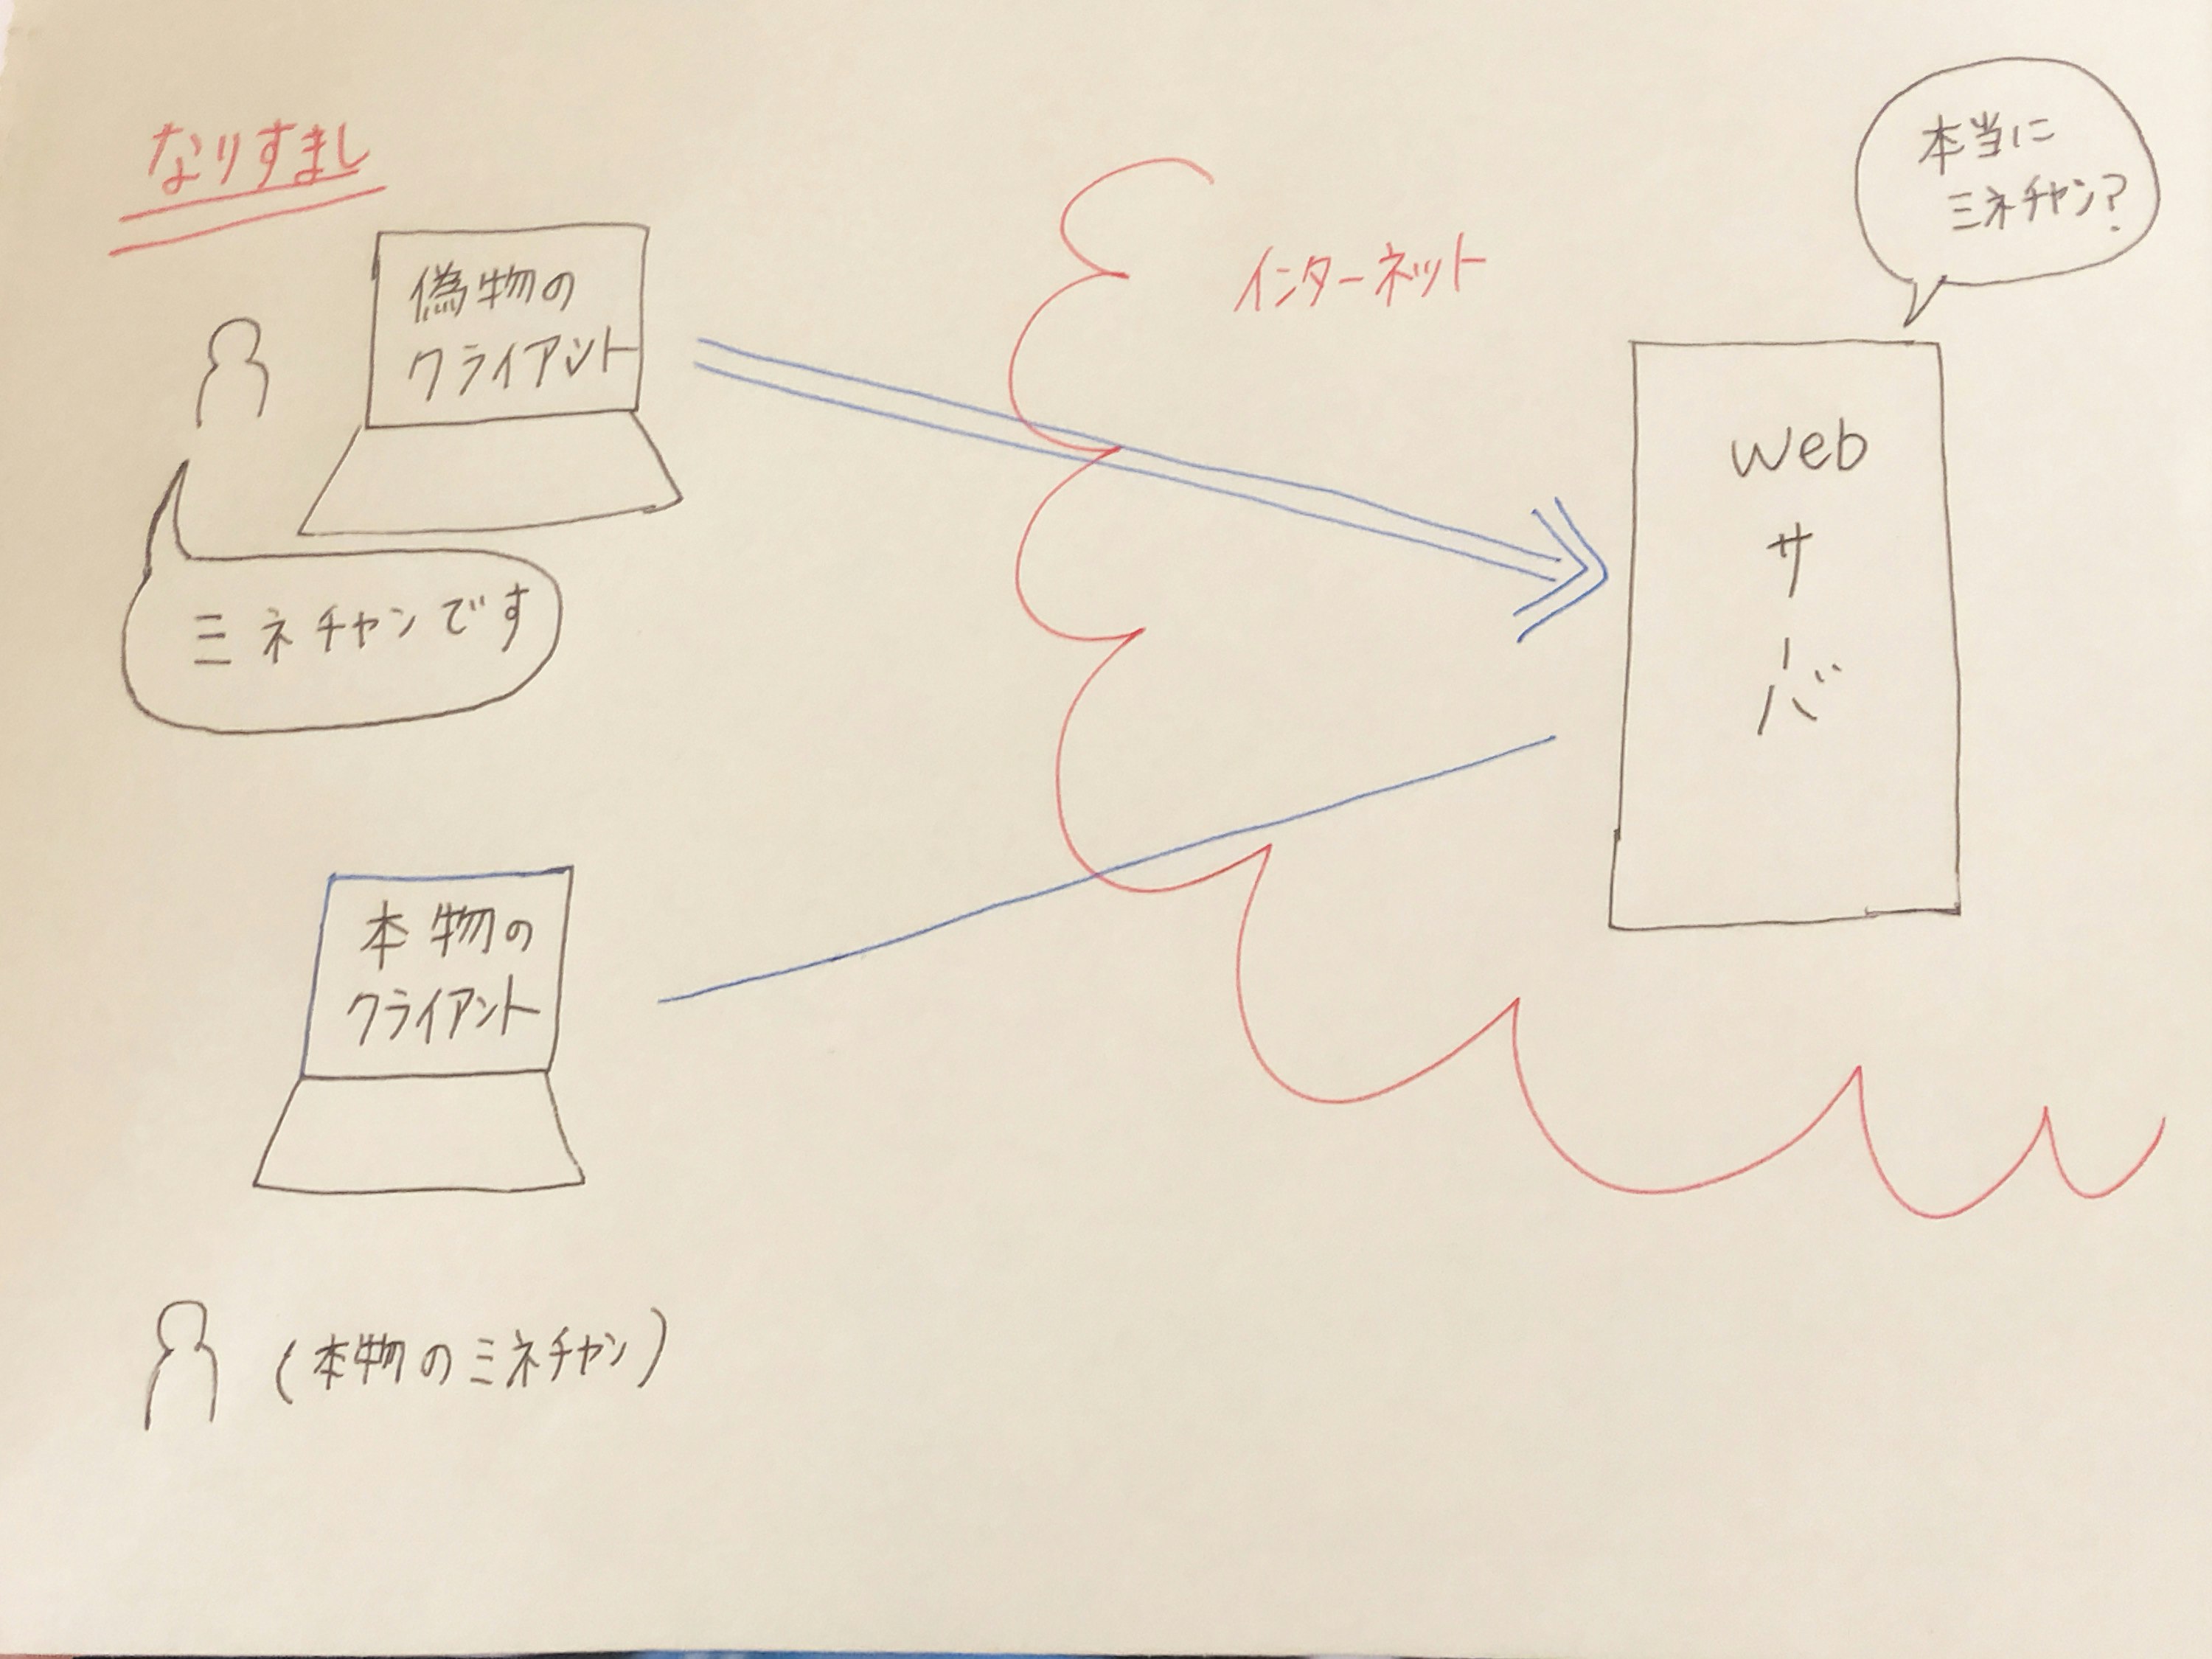 なりすまし
偽物の
クライアント
ミネチャンです
インターネット
本当に
ミネチャン?
Web
サ
ー
バ
本物の
クライアント
(本物のミネチャン)